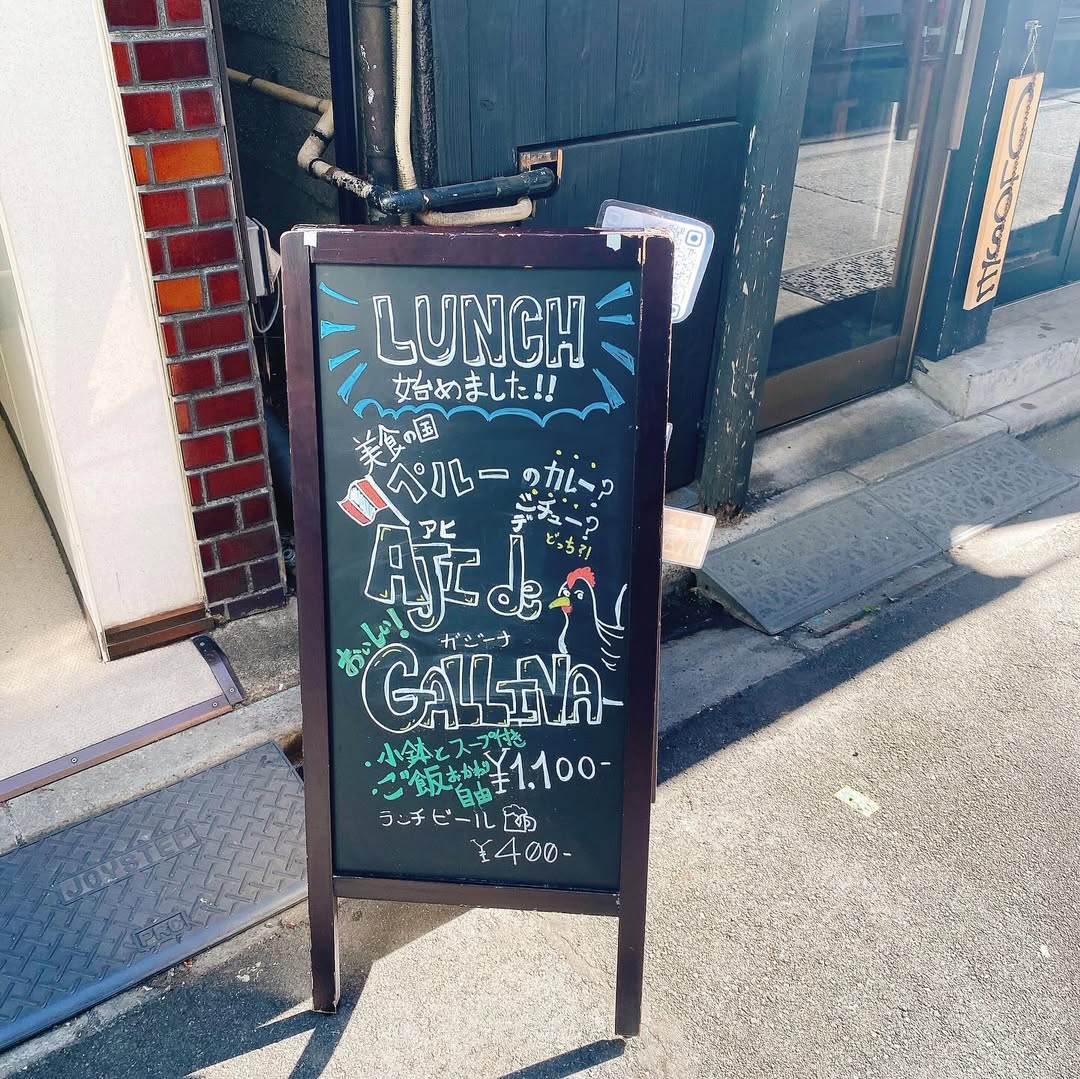 LUNCH
始めました!!
美食の国
ペルーのカレー?
シチュー?
どっち?!
アヒ デ
AJI de
おいしい!
ガジーナ
GALLINA
・小鉢とスープ付き
・ご飯おかわり自由
¥1,100-
ランチビール
¥400-
JOYSTEP
PRO